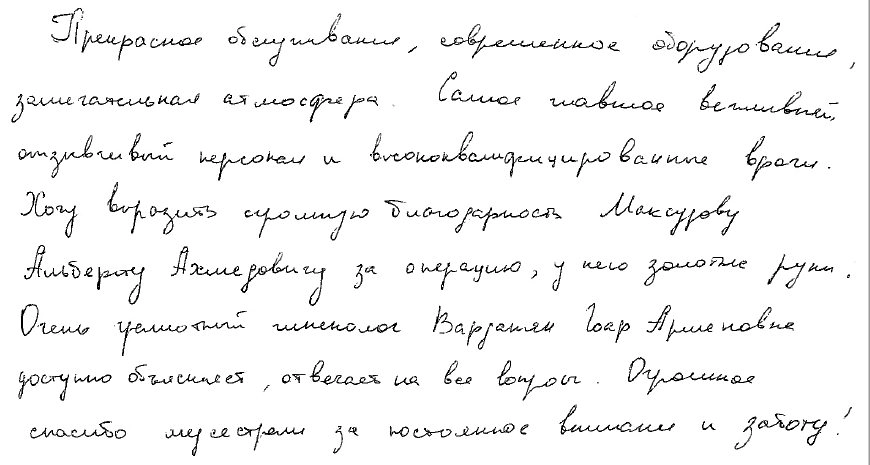 Прекрасное обслуживание, современное оборудование,
замечательная атмосфера. Самое главное вежливый,
отзывчивый персонал и высококвалифицированные врачи.
Хочу выразить огромную благодарность Максудову
Альберту Ахмедовичу за операцию, у него золотые руки.
Очень грамотный гинеколог Варданян Гоар Арменовна
доступно объясняет, отвечает на все вопросы. Огромное
спасибо медсестрам за постоянное внимание и заботу!